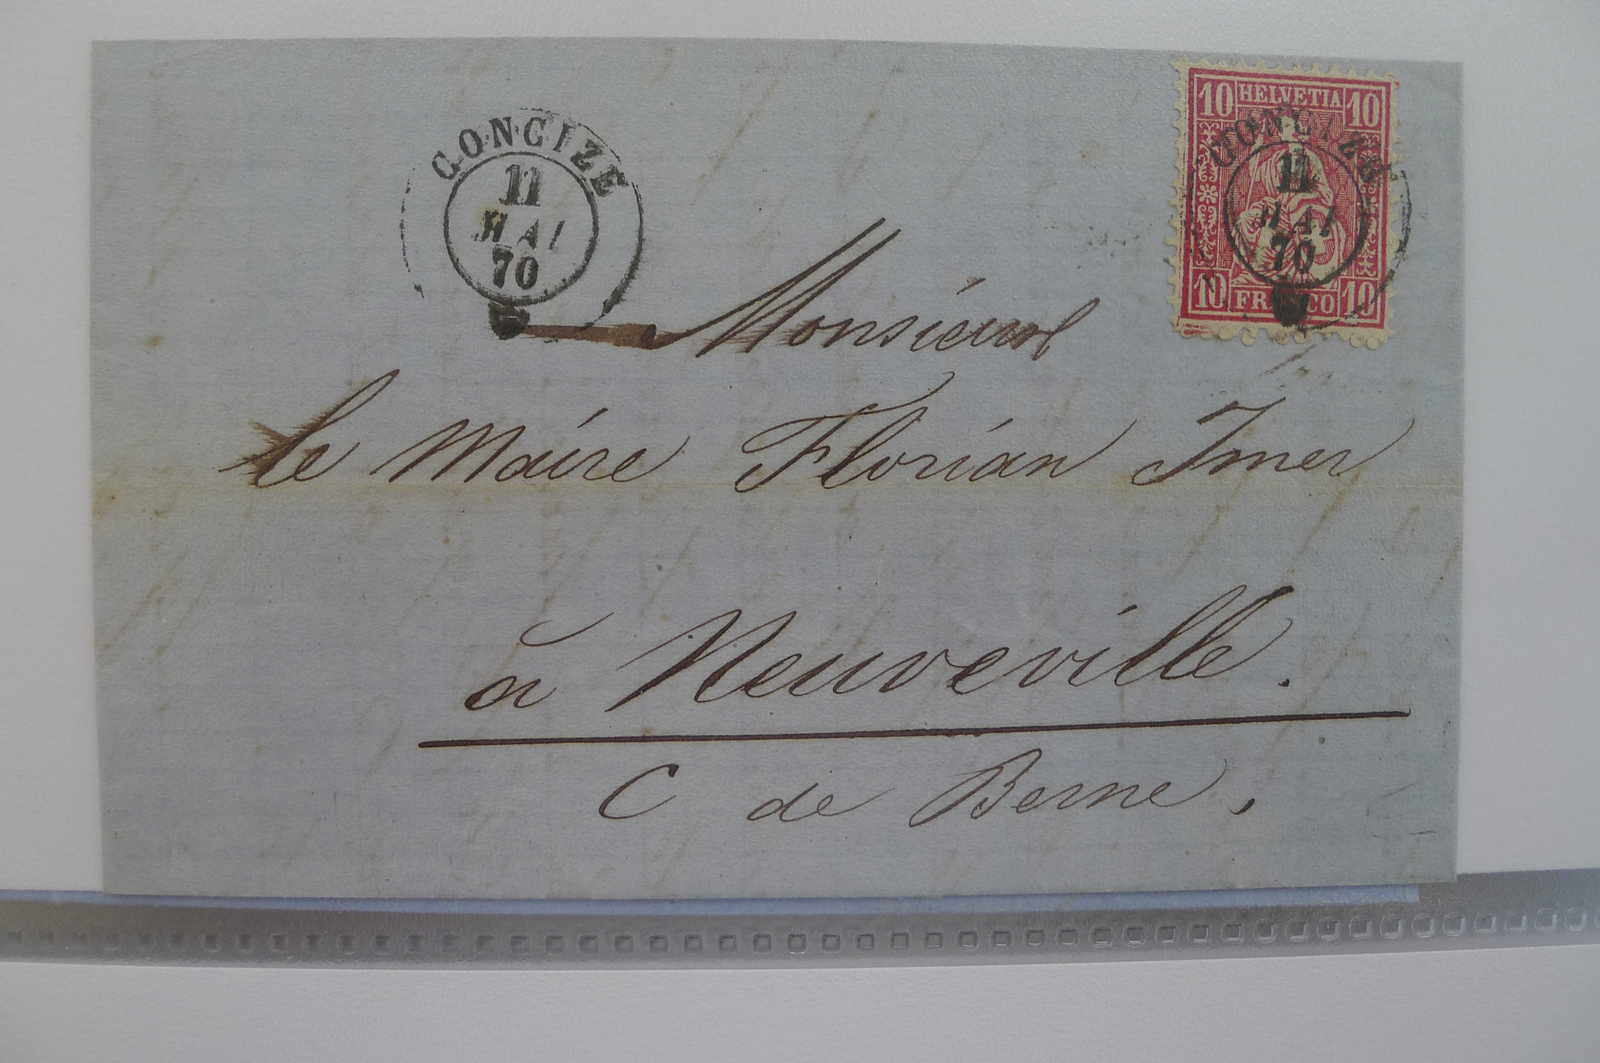 CONCIZE
11
MAI
70
10 HELVETIA 10
CONCIZE
11
MAI
70
10 FRANCO 10
Monsieur
le Maire Florian Imer
à Neuveville.
C de Berne,